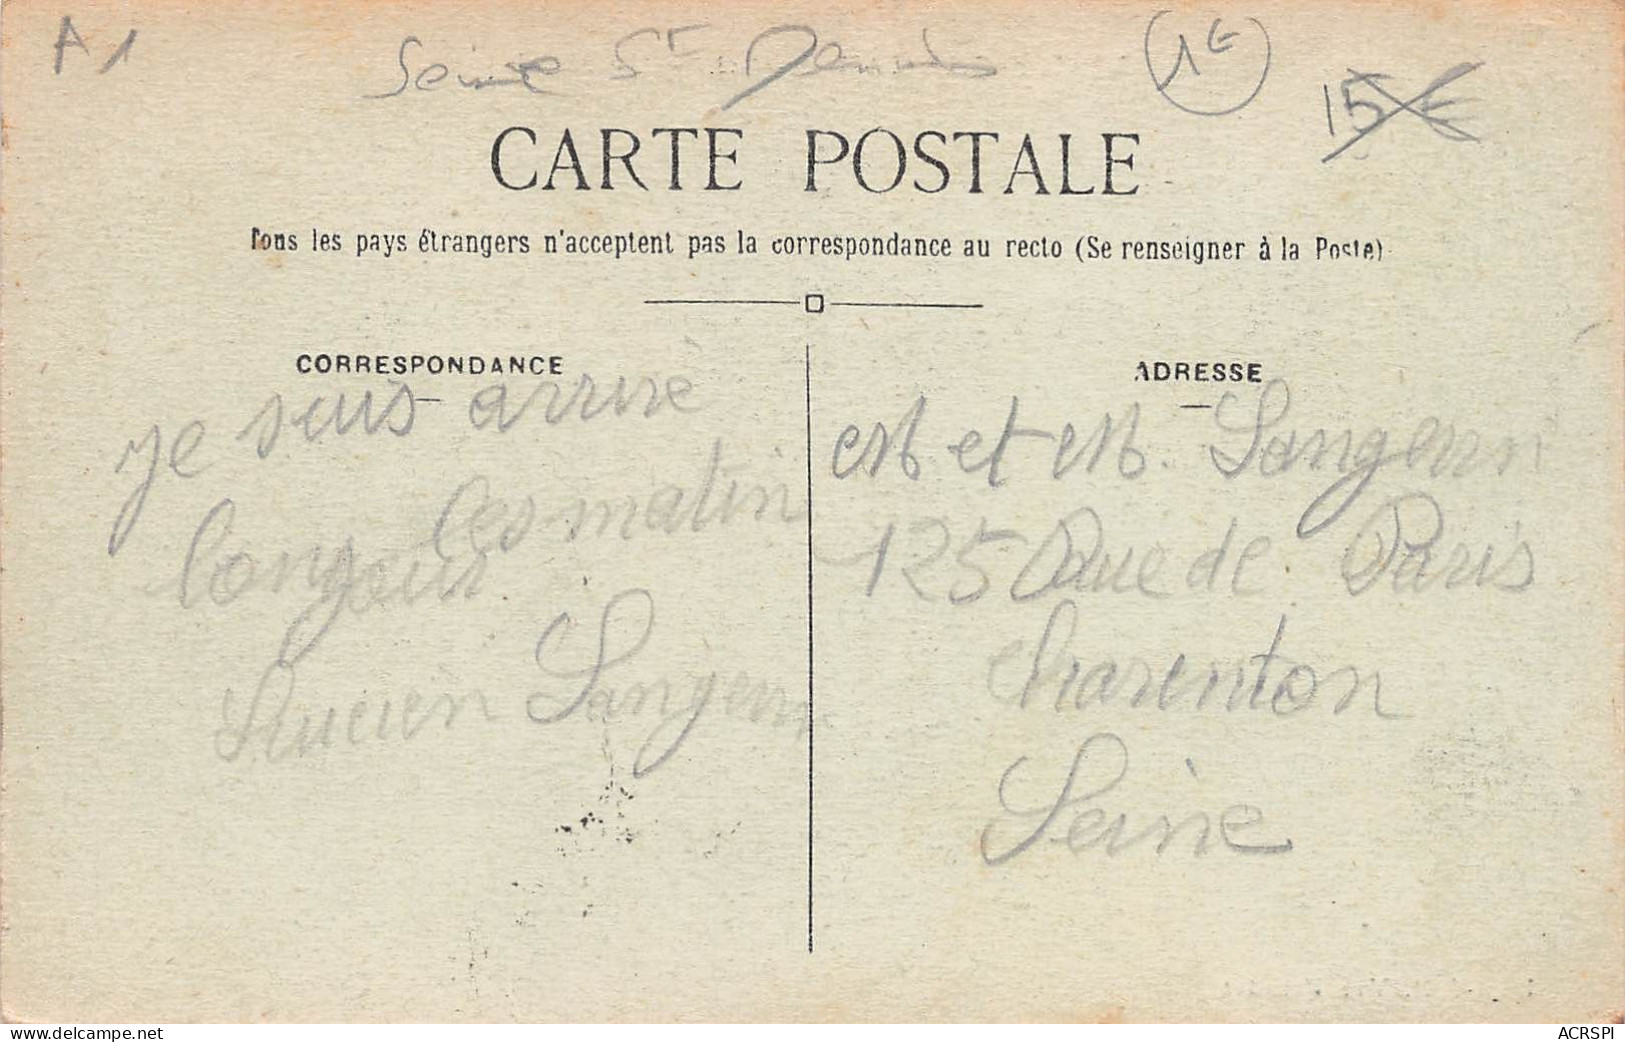 A1
Seine St Denis
1€
15€
CARTE POSTALE
Tous les pays étrangers n'acceptent pas la correspondance au recto (Se renseigner à la Poste)
CORRESPONDANCE
je suis arrive
ces matin
Lucien Langevin
ADRESSE
M et M. Langevin
125 Rue de Paris
Charenton
Seine
www.delcampe.net
ACRSPI